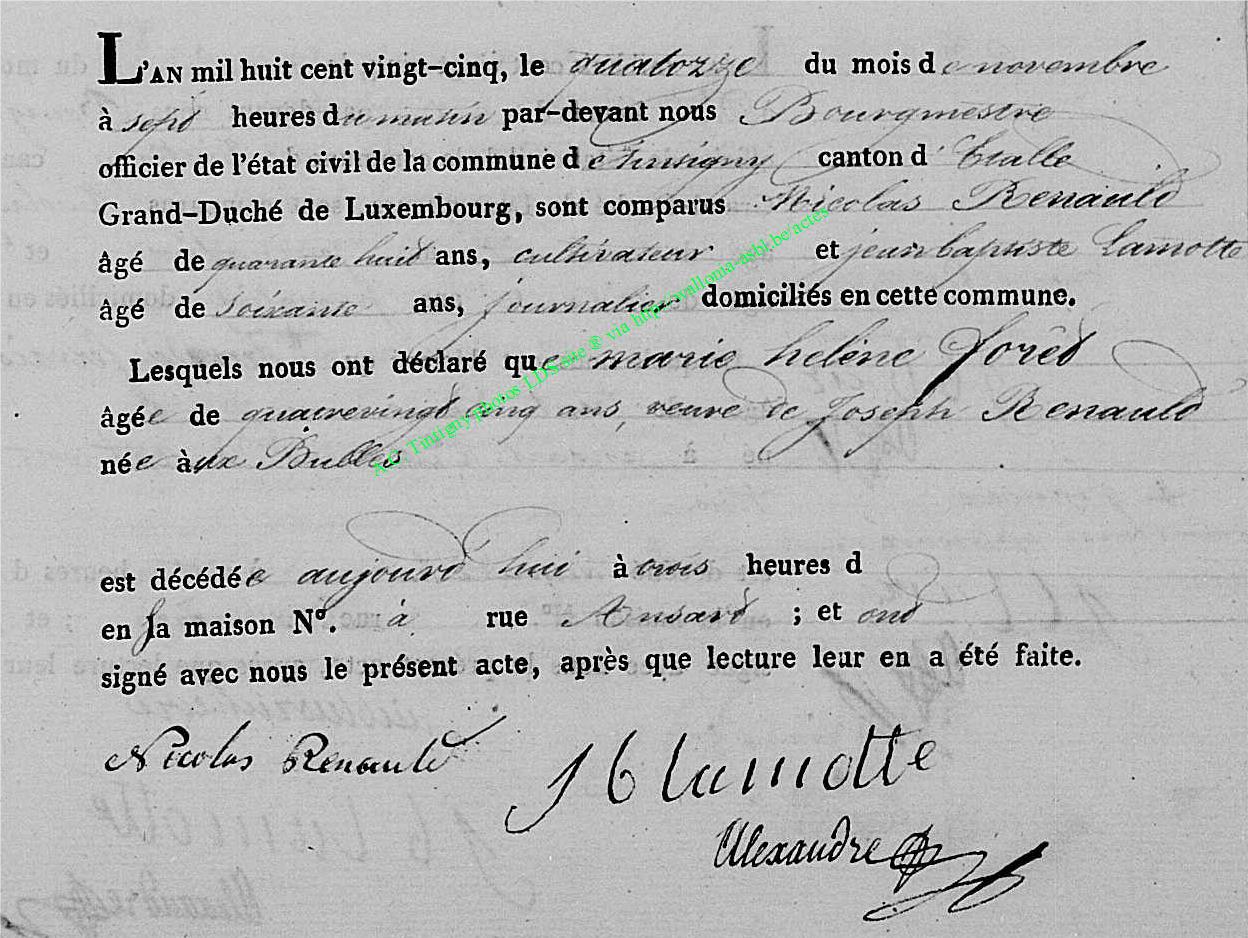 L'AN mil huit cent vingt-cinq, le quatozze du mois de novembre
à sept heures du matin par-devant nous Bourgmestre
officier de l'état civil de la commune de tintigny canton d'Etalle
Grand-Duché de Luxembourg, sont comparus Nicolas Renauld
âgé de quarante huit ans, cultivateur et jean baptiste Lamotte
âgé de soixante ans, journalier domiciliés en cette commune.
Lesquels nous ont déclaré que marie helène forêt
âgée de quatrevingt cinq ans, veuve de Joseph Renauld
née àux Bulles
est décédée aujourd'hui à trois heures d
en sa maison N°. à rue Ansart ; et ont
signé avec nous le présent acte, après que lecture leur en a été faite.
Nicolas Renauld
J b lamotte
Alexandre
A.C. Tintigny photos LDS site ® via http://wallonia-asbl.be/actes